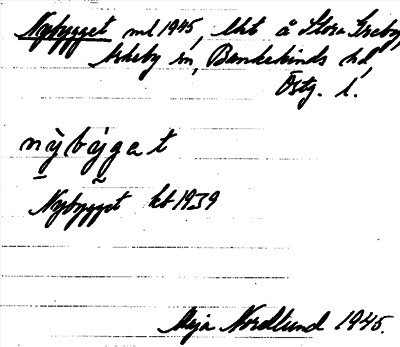 Nybygget ml 1945, lht å Stora Greby,
Askeby sn, Bankekinds hd,
Östg. l.
nỳbýgat
Nybygget kb 1939
Maja Nordlund 1945.